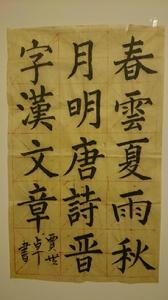 春雲夏雨秋
月明唐詩晋
字漢文章
賈世卓
書